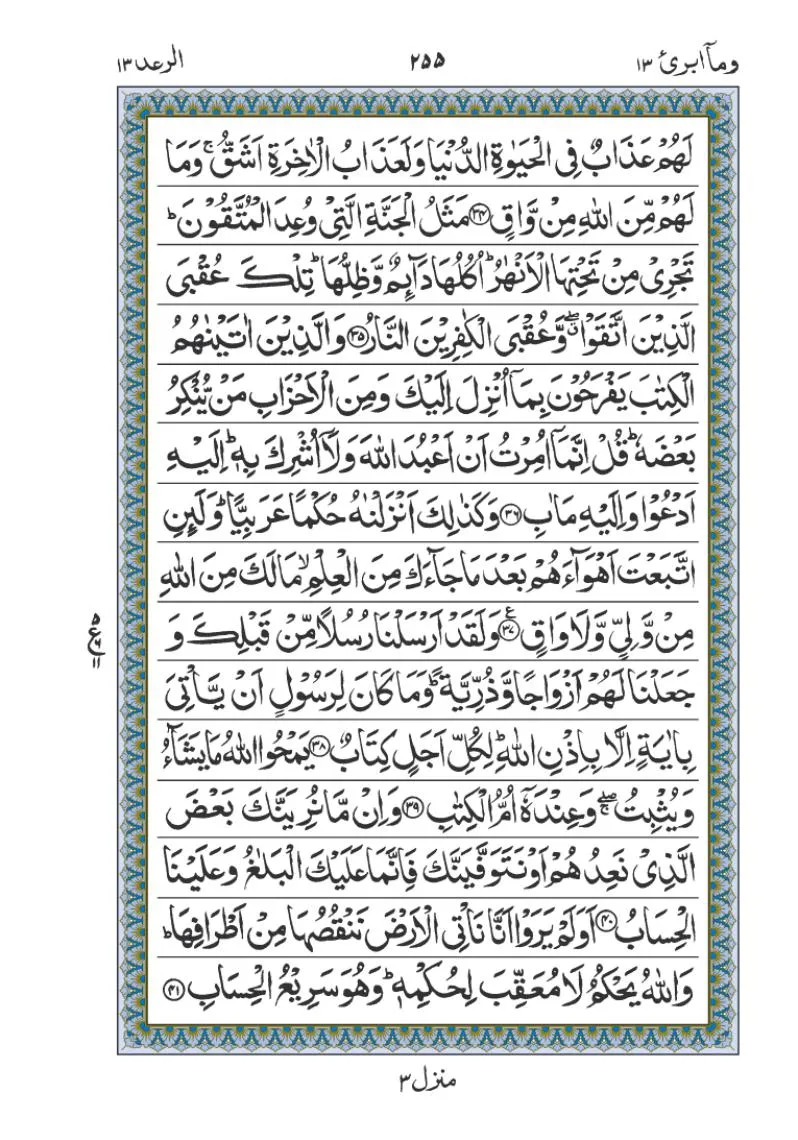 وما ابرئ ١٣
٢٥٥
الرعد ١٣
لَهُمْ عَذَابٌ فِی الْحَیٰوةِ الدُّنْیَا وَلَعَذَابُ الْاٰخِرَةِ اَشَقُّ ۚ وَمَا
لَهُمْ مِّنَ اللّٰهِ مِنْ وَّاقٍ ﴿۳۴﴾ مَثَلُ الْجَنَّةِ الَّتِیْ وُعِدَ الْمُتَّقُوْنَ ؕ
تَجْرِیْ مِنْ تَحْتِهَا الْاَنْهٰرُ ؕ اُكُلُهَا دَآىِٕمٌ وَّظِلُّهَا ؕ تِلْكَ عُقْبَی
الَّذِیْنَ اتَّقَوْا ۖۗ وَّعُقْبَی الْكٰفِرِیْنَ النَّارُ ﴿۳۵﴾ وَالَّذِیْنَ اٰتَیْنٰهُمُ
الْكِتٰبَ یَفْرَحُوْنَ بِمَاۤ اُنْزِلَ اِلَیْكَ وَمِنَ الْاَحْزَابِ مَنْ یُّنْكِرُ
بَعْضَهٗ ؕ قُلْ اِنَّمَاۤ اُمِرْتُ اَنْ اَعْبُدَ اللّٰهَ وَلَاۤ اُشْرِكَ بِهٖ ؕ اِلَیْهِ
اَدْعُوْا وَاِلَیْهِ مَاٰبِ ﴿۳۶﴾ وَكَذٰلِكَ اَنْزَلْنٰهُ حُكْمًا عَرَبِیًّا ؕ وَلَىِٕنِ
اتَّبَعْتَ اَهْوَآءَهُمْ بَعْدَ مَا جَآءَكَ مِنَ الْعِلْمِ ۙ مَا لَكَ مِنَ اللّٰهِ
مِنْ وَّلِیٍّ وَّلَا وَاقٍ ﴿۳۷﴾ ۧ وَلَقَدْ اَرْسَلْنَا رُسُلًا مِّنْ قَبْلِكَ وَ
جَعَلْنَا لَهُمْ اَزْوَاجًا وَّذُرِّیَّةً ؕ وَمَا كَانَ لِرَسُوْلٍ اَنْ یَّاْتِیَ
بِاٰیَةٍ اِلَّا بِاِذْنِ اللّٰهِ ؕ لِكُلِّ اَجَلٍ كِتَابٌ ﴿۳۸﴾ یَمْحُوا اللّٰهُ مَا یَشَآءُ
وَیُثْبِتُ ۖۚ وَعِنْدَهٗۤ اُمُّ الْكِتٰبِ ﴿۳۹﴾ وَاِنْ مَّا نُرِیَنَّكَ بَعْضَ
الَّذِیْ نَعِدُهُمْ اَوْ نَتَوَفَّیَنَّكَ فَاِنَّمَا عَلَیْكَ الْبَلٰغُ وَعَلَیْنَا
الْحِسَابُ ﴿۴۰﴾ اَوَلَمْ یَرَوْا اَنَّا نَاْتِی الْاَرْضَ نَنْقُصُهَا مِنْ اَطْرَافِهَا ؕ
وَاللّٰهُ یَحْكُمُ لَا مُعَقِّبَ لِحُكْمِهٖ ؕ وَهُوَ سَرِیْعُ الْحِسَابِ ﴿۴۱﴾
۵ ع ۱۱
منزل ٣